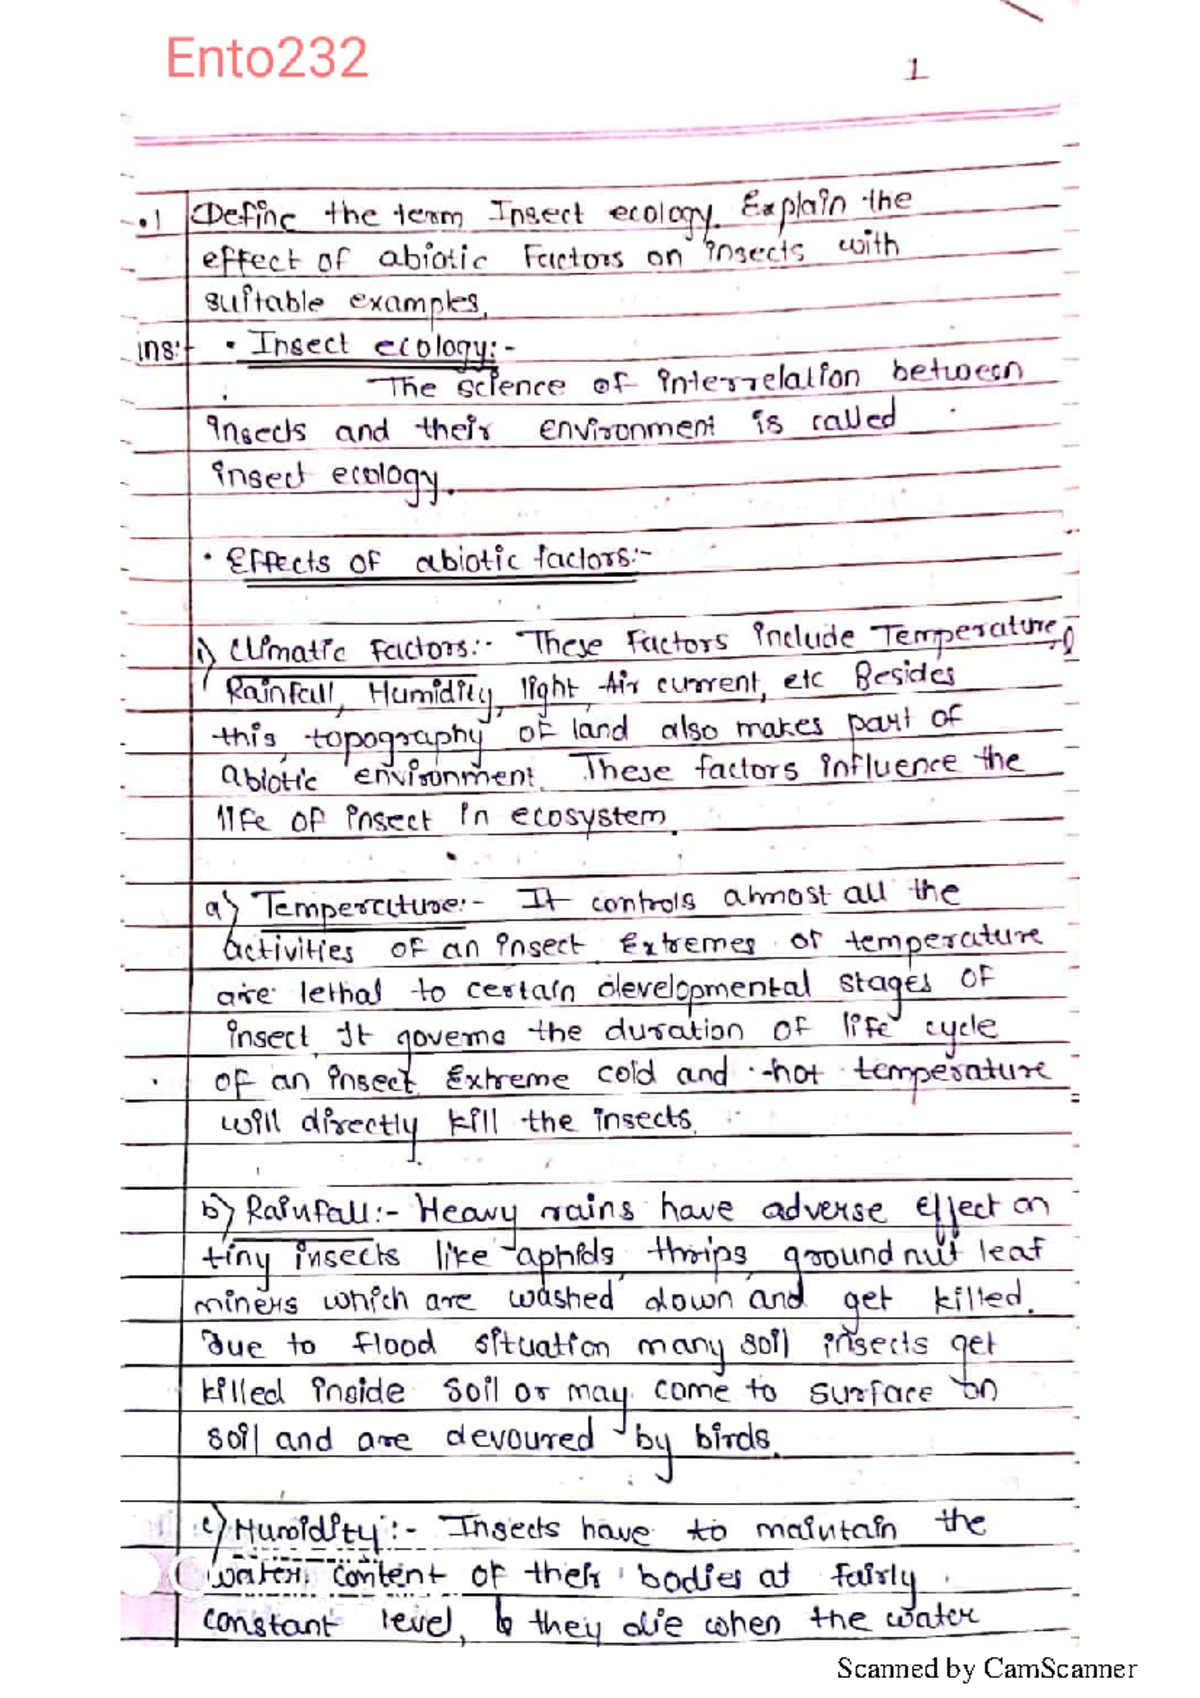 Ento232
1
.1 Define the term Insect ecology. Explain the
effect of abiotic Factors on insects with
suitable examples.
ins:- • Insect ecology:-
The science of interrelation between
insects and their environment is called
insect ecology.
• Effects of abiotic factors:-
i) Climatic Factors:- These Factors include Temperature,
Rainfall, Humidity, light, Air current, etc Besides
this, topography of land also makes part of
abiotic environment. These factors influence the
life of insect in ecosystem.
a) Temperature:- It controls almost all the
activities of an insect. Extremes of temperature
are lethal to certain developmental stages of
insect. It governs the duration of life cycle
of an insect. Extreme cold and hot temperature
will directly kill the insects.
b) Rainfall:- Heavy rains have adverse effect on
tiny insects like aphids, thrips, groundnut leaf
miners which are washed down and get killed.
Due to flood situation many soil insects get
killed inside soil or may come to surface on
soil and are devoured by birds.
c) Humidity:- Insects have to maintain the
water content of their bodies at fairly
constant level, & they die when the water
Scanned by CamScanner